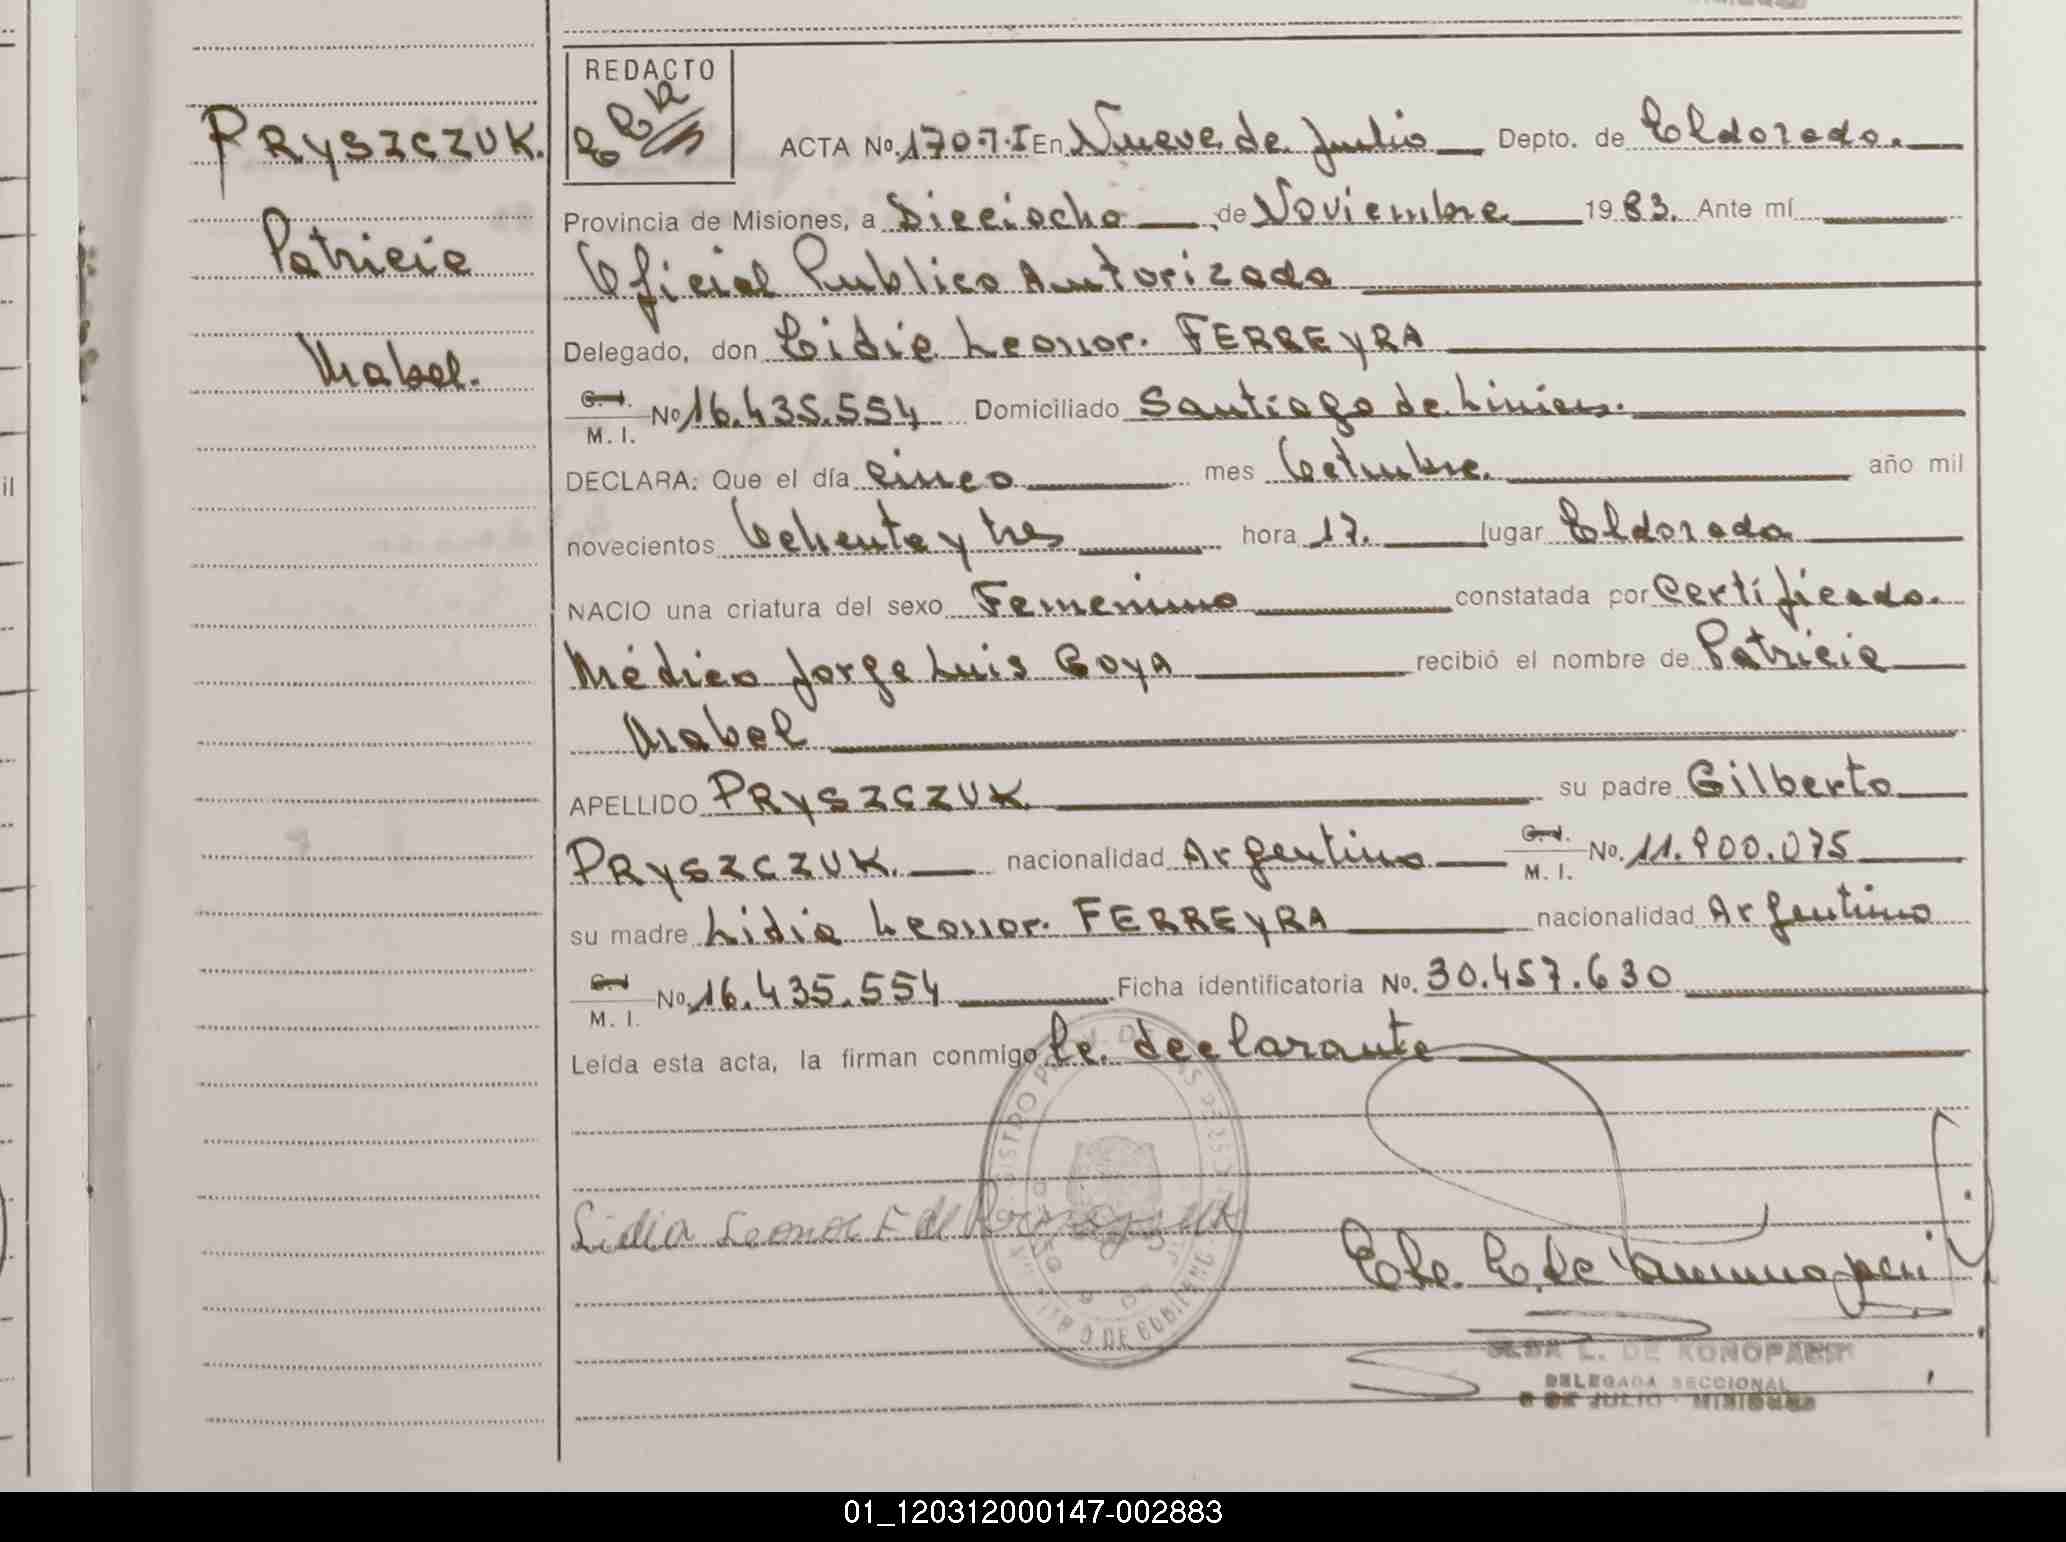 PRYSZCZUK.
Patricia
Mabel.
REDACTO
ACTA No. 170.T.I En Nueve de Julio Depto. de Eldorado.
Provincia de Misiones, a Dieciocho de Noviembre 1983. Ante mí
Oficial Publico Autorizado
Delegado, don Lidia Leonor. FERREYRA
C. I.
M. I. No 16.435.554 Domiciliado Santiago de Liniers.
DECLARA: Que el día cinco mes Octubre. año mil
novecientos Ochenta y tres hora 17. lugar Eldorado
NACIO una criatura del sexo Femenino constatada por Certificado.
Médico Jorge Luis Goya recibió el nombre de Patricia
Mabel
APELLIDO PRYSZCZUK su padre Gilberto
PRYSZCZUK. nacionalidad Argentino C. I. M. I. No. 11.900.075
su madre Lidia Leonor. FERREYRA nacionalidad Argentino
C. I. M. I. No. 16.435.554 Ficha identificatoria No. 30.457.630
Leída esta acta, la firman conmigo la declarante
Lidia Leonor F de
ELDA L. DE KONOPACKI
DELEGADA SECCIONAL
9 DE JULIO - MISIONES
01_120312000147-002883